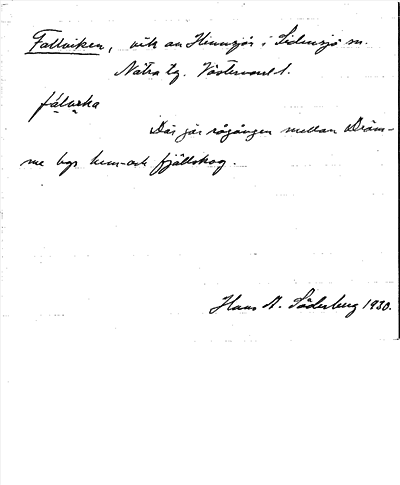 Fallviken, vik av Hinnsjön i Sidensjö sn.
Nätra tg. Västernorrl. l.
fálvɩka
Där går rågången mellan Dröm-
me bys hem- och fjällskog.
Hans A. Söderberg 1930.